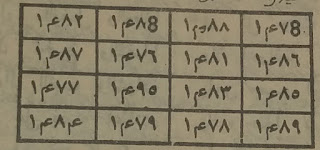 ۱۴۸۲ ۱۴۸۵ ۱۴۸۸ ۱۴۷۵
۱۴۸۷ ۱۴۷۶ ۱۴۸۱ ۱۴۸۶
۱۴۷۷ ۱۴۹۰ ۱۴۸۳ ۱۴۸۰
۱۴۸۴ ۱۴۷۹ ۱۴۷۸ ۱۴۸۹